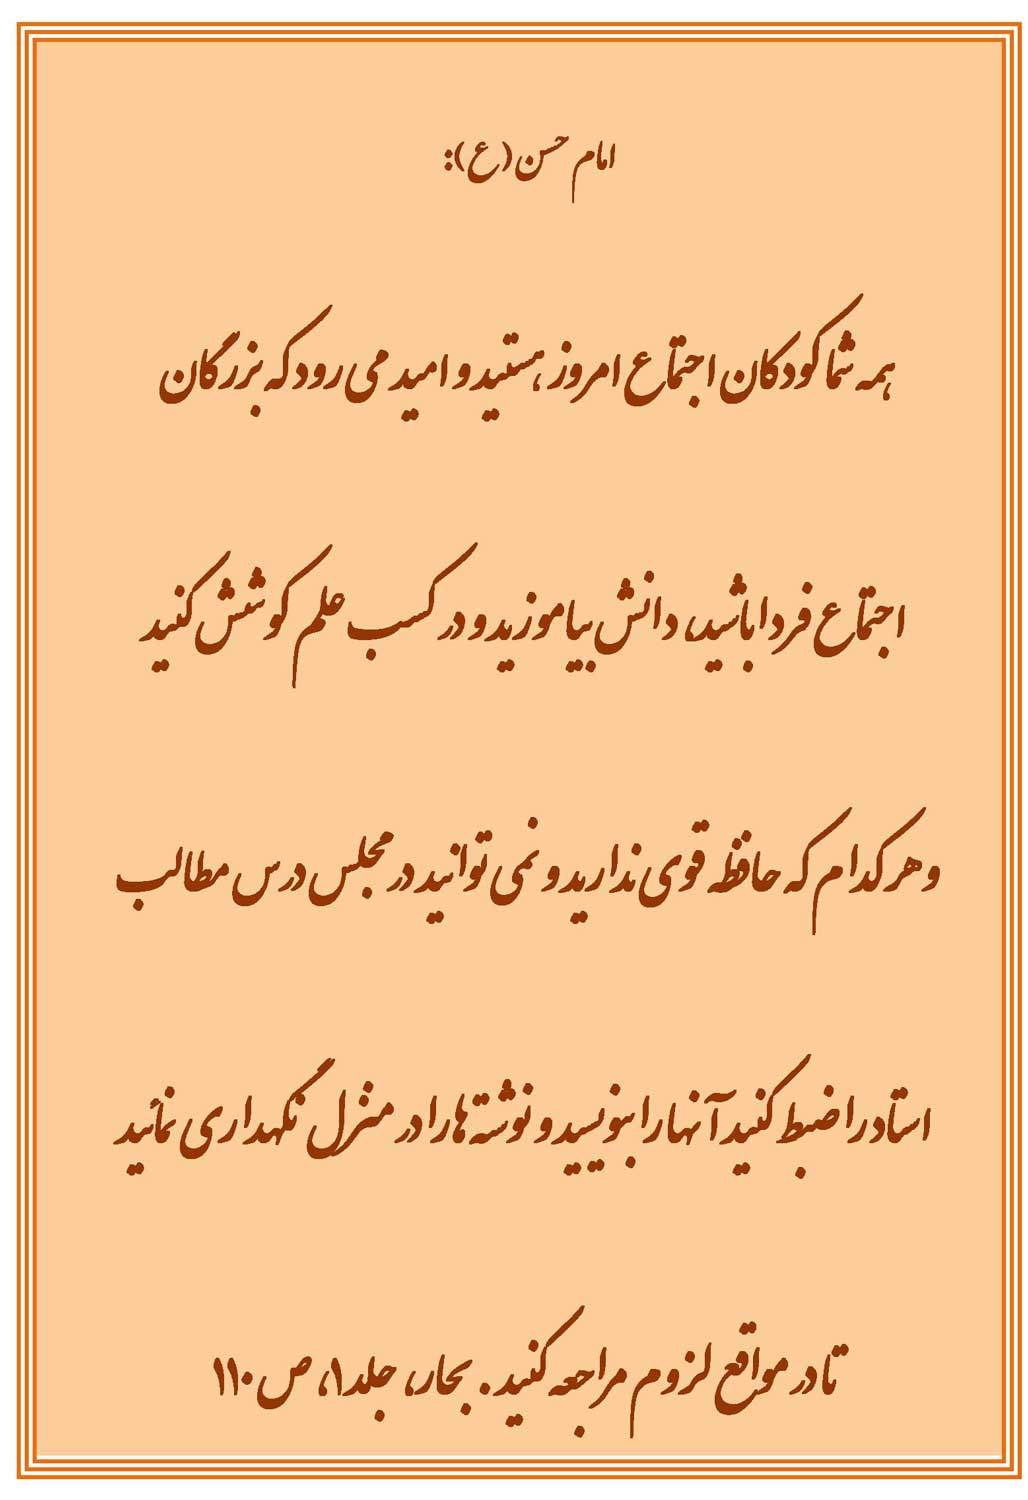 امام حسن(ع):
همه شما کودکان اجتماع امروز هستید و امید می رود که بزرگان
اجتماع فردا باشید، دانش بیاموزید و در کسب علم کوشش کنید
و هر کدام که حافظه قوی ندارید و نمی توانید در مجلس درس مطالب
استاد را ضبط کنید آنها را بنویسید و نوشته ها را در منزل نگهداری نمائید
تا در مواقع لزوم مراجعه کنید. بحار، جلد۱، ص۱۱۰